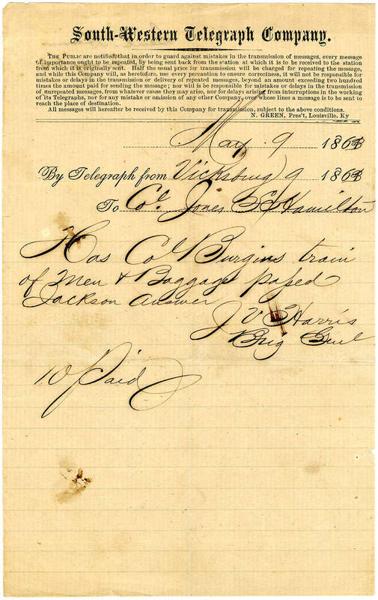 South-Western Telegraph Company.
THE PUBLIC are notified that in order to guard against mistakes in the transmission of messages, every message
of importance ought to be repeated, by being sent back from the station at which it is to be received to the station
from which it is originally sent. Half the usual price for transmission will be charged for repeating the message,
and while this Company will, as heretofore, use every precaution to ensure correctness, it will not be responsible
for mistakes or delays in the transmission or delivery of repeated messages, beyond an amount exceeding two hundred
times the amount paid for sending the message; nor will it be responsible for mistakes or delays in the transmission
of unrepeated messages, from whatever cause they may arise, nor for delays arising from interruptions in the working
of its Telegraphs, nor for any mistake or omission of any other Company, over whose lines a message is to be sent to
reach the place of destination.
All messages will hereafter be received by this Company for transmission, subject to the above conditions.
N. GREEN, Pres't, Louisville, Ky
May 9 1863
By Telegraph from Vicksburg 9 1863
To Col Jones S Hamilton
Has Col Burgins train
of Men & Baggage passed
Jackson Answer
J V Harris
Brig Genl
10 Paid